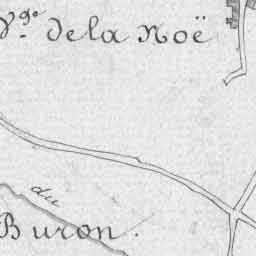 Vge. de la Noë
du
Buron.